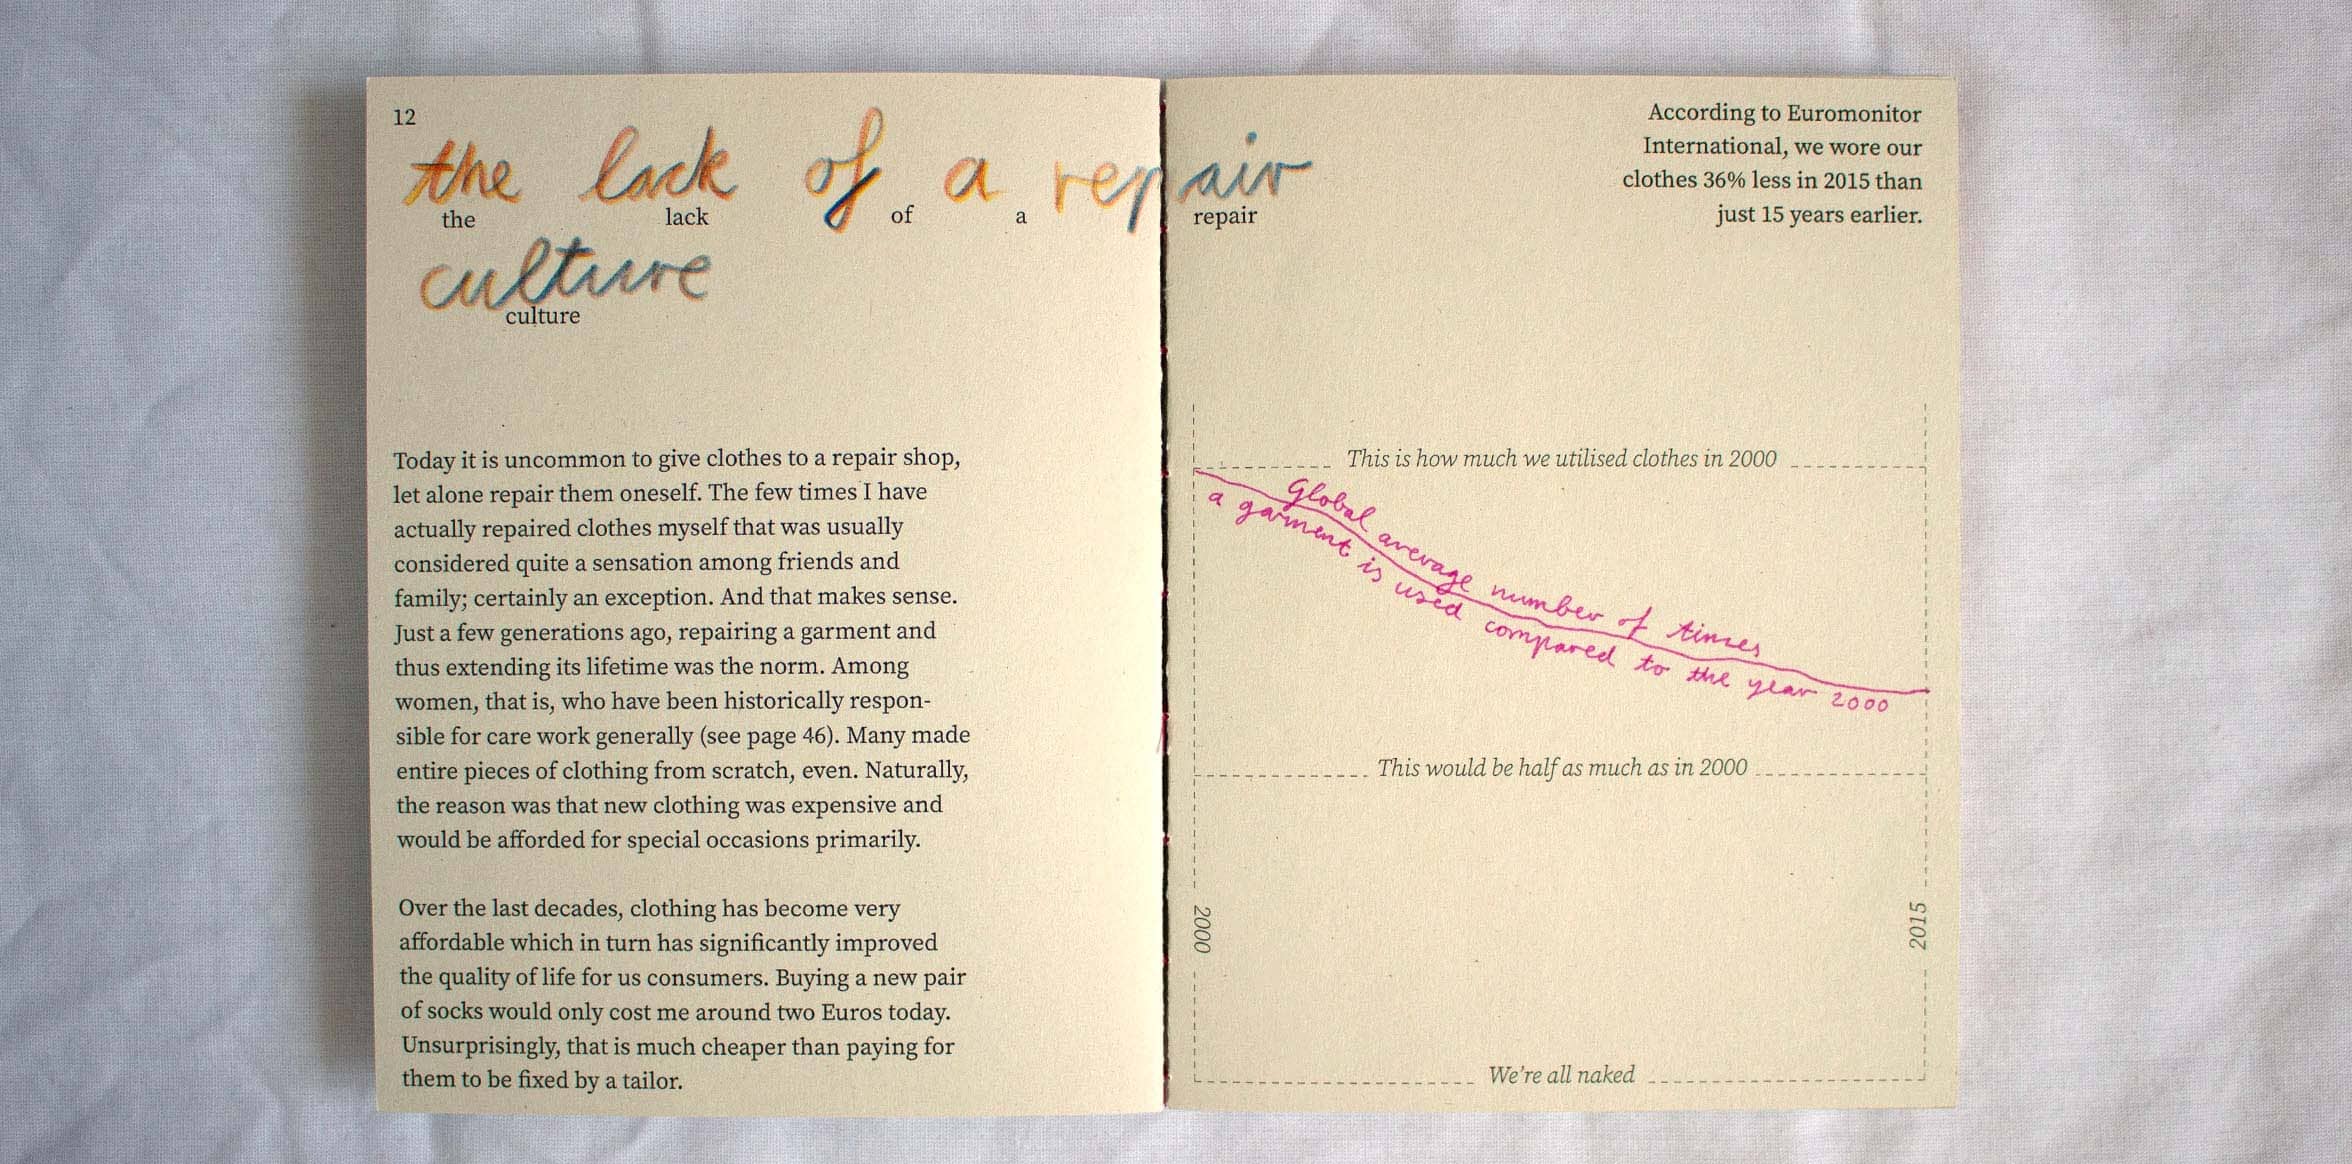 12
the lack of a repair
the lack of a repair
culture
culture
Today it is uncommon to give clothes to a repair shop,
let alone repair them oneself. The few times I have
actually repaired clothes myself that was usually
considered quite a sensation among friends and
family; certainly an exception. And that makes sense.
Just a few generations ago, repairing a garment and
thus extending its lifetime was the norm. Among
women, that is, who have been historically respon-
sible for care work generally (see page 46). Many made
entire pieces of clothing from scratch, even. Naturally,
the reason was that new clothing was expensive and
would be afforded for special occasions primarily.
Over the last decades, clothing has become very
affordable which in turn has significantly improved
the quality of life for us consumers. Buying a new pair
of socks would only cost me around two Euros today.
Unsurprisingly, that is much cheaper than paying for
them to be fixed by a tailor.
According to Euromonitor
International, we wore our
clothes 36% less in 2015 than
just 15 years earlier.
This is how much we utilised clothes in 2000
Global average number of times
a garment is used compared to the year 2000
This would be half as much as in 2000
2000
2015
We're all naked